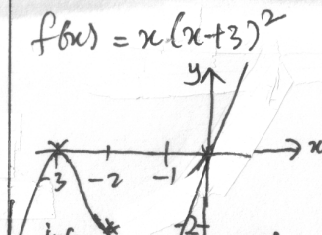 f(x) = x(x+3)²
y
-3 -2 -1 x
-2